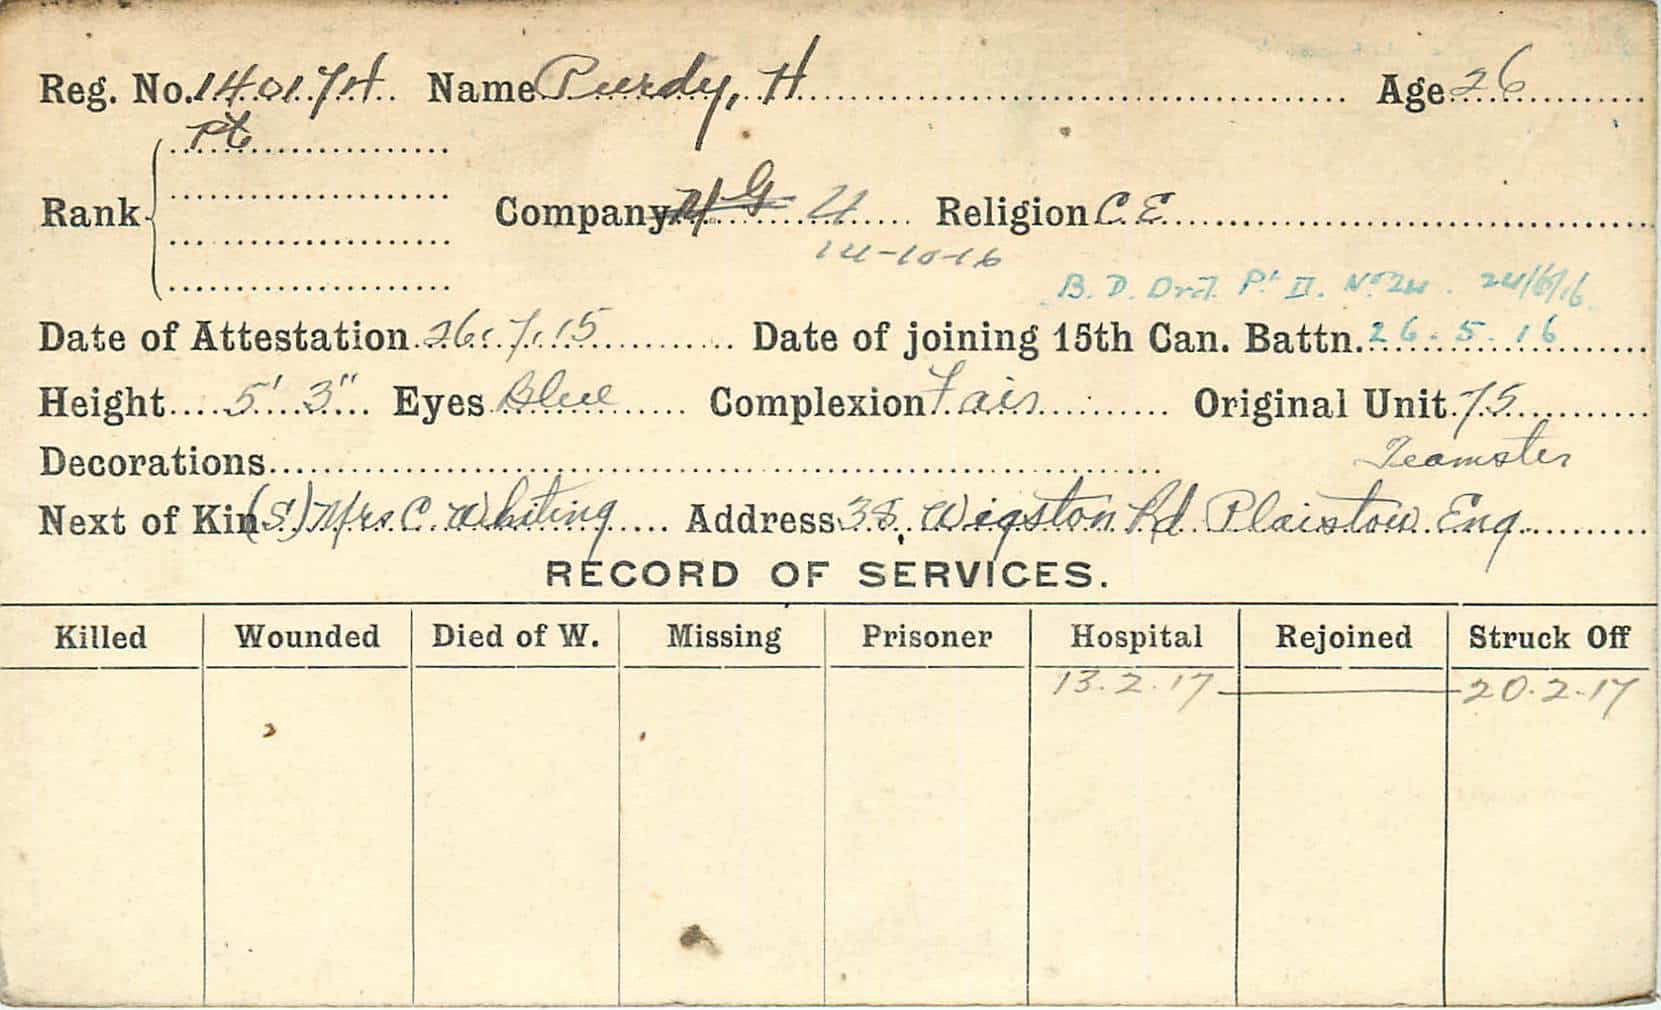 Reg. No. 140174 Name Purdy, H Age 26
Pte
Rank Company 4 G 4 Religion C.E.
14-10-16
B. D. Ord. Pt II. No 24. 24/6/16
Date of Attestation 26.7.15 Date of joining 15th Can. Battn. 26.5.16
Height 5' 3" Eyes Blue Complexion Fair Original Unit 75
Decorations Teamster
Next of Kin (S) Mrs C. Whiting Address 38 Wigston Rd Plaistow Eng
RECORD OF SERVICES.
Killed Wounded Died of W. Missing Prisoner Hospital Rejoined Struck Off
13.2.17 20.2.17